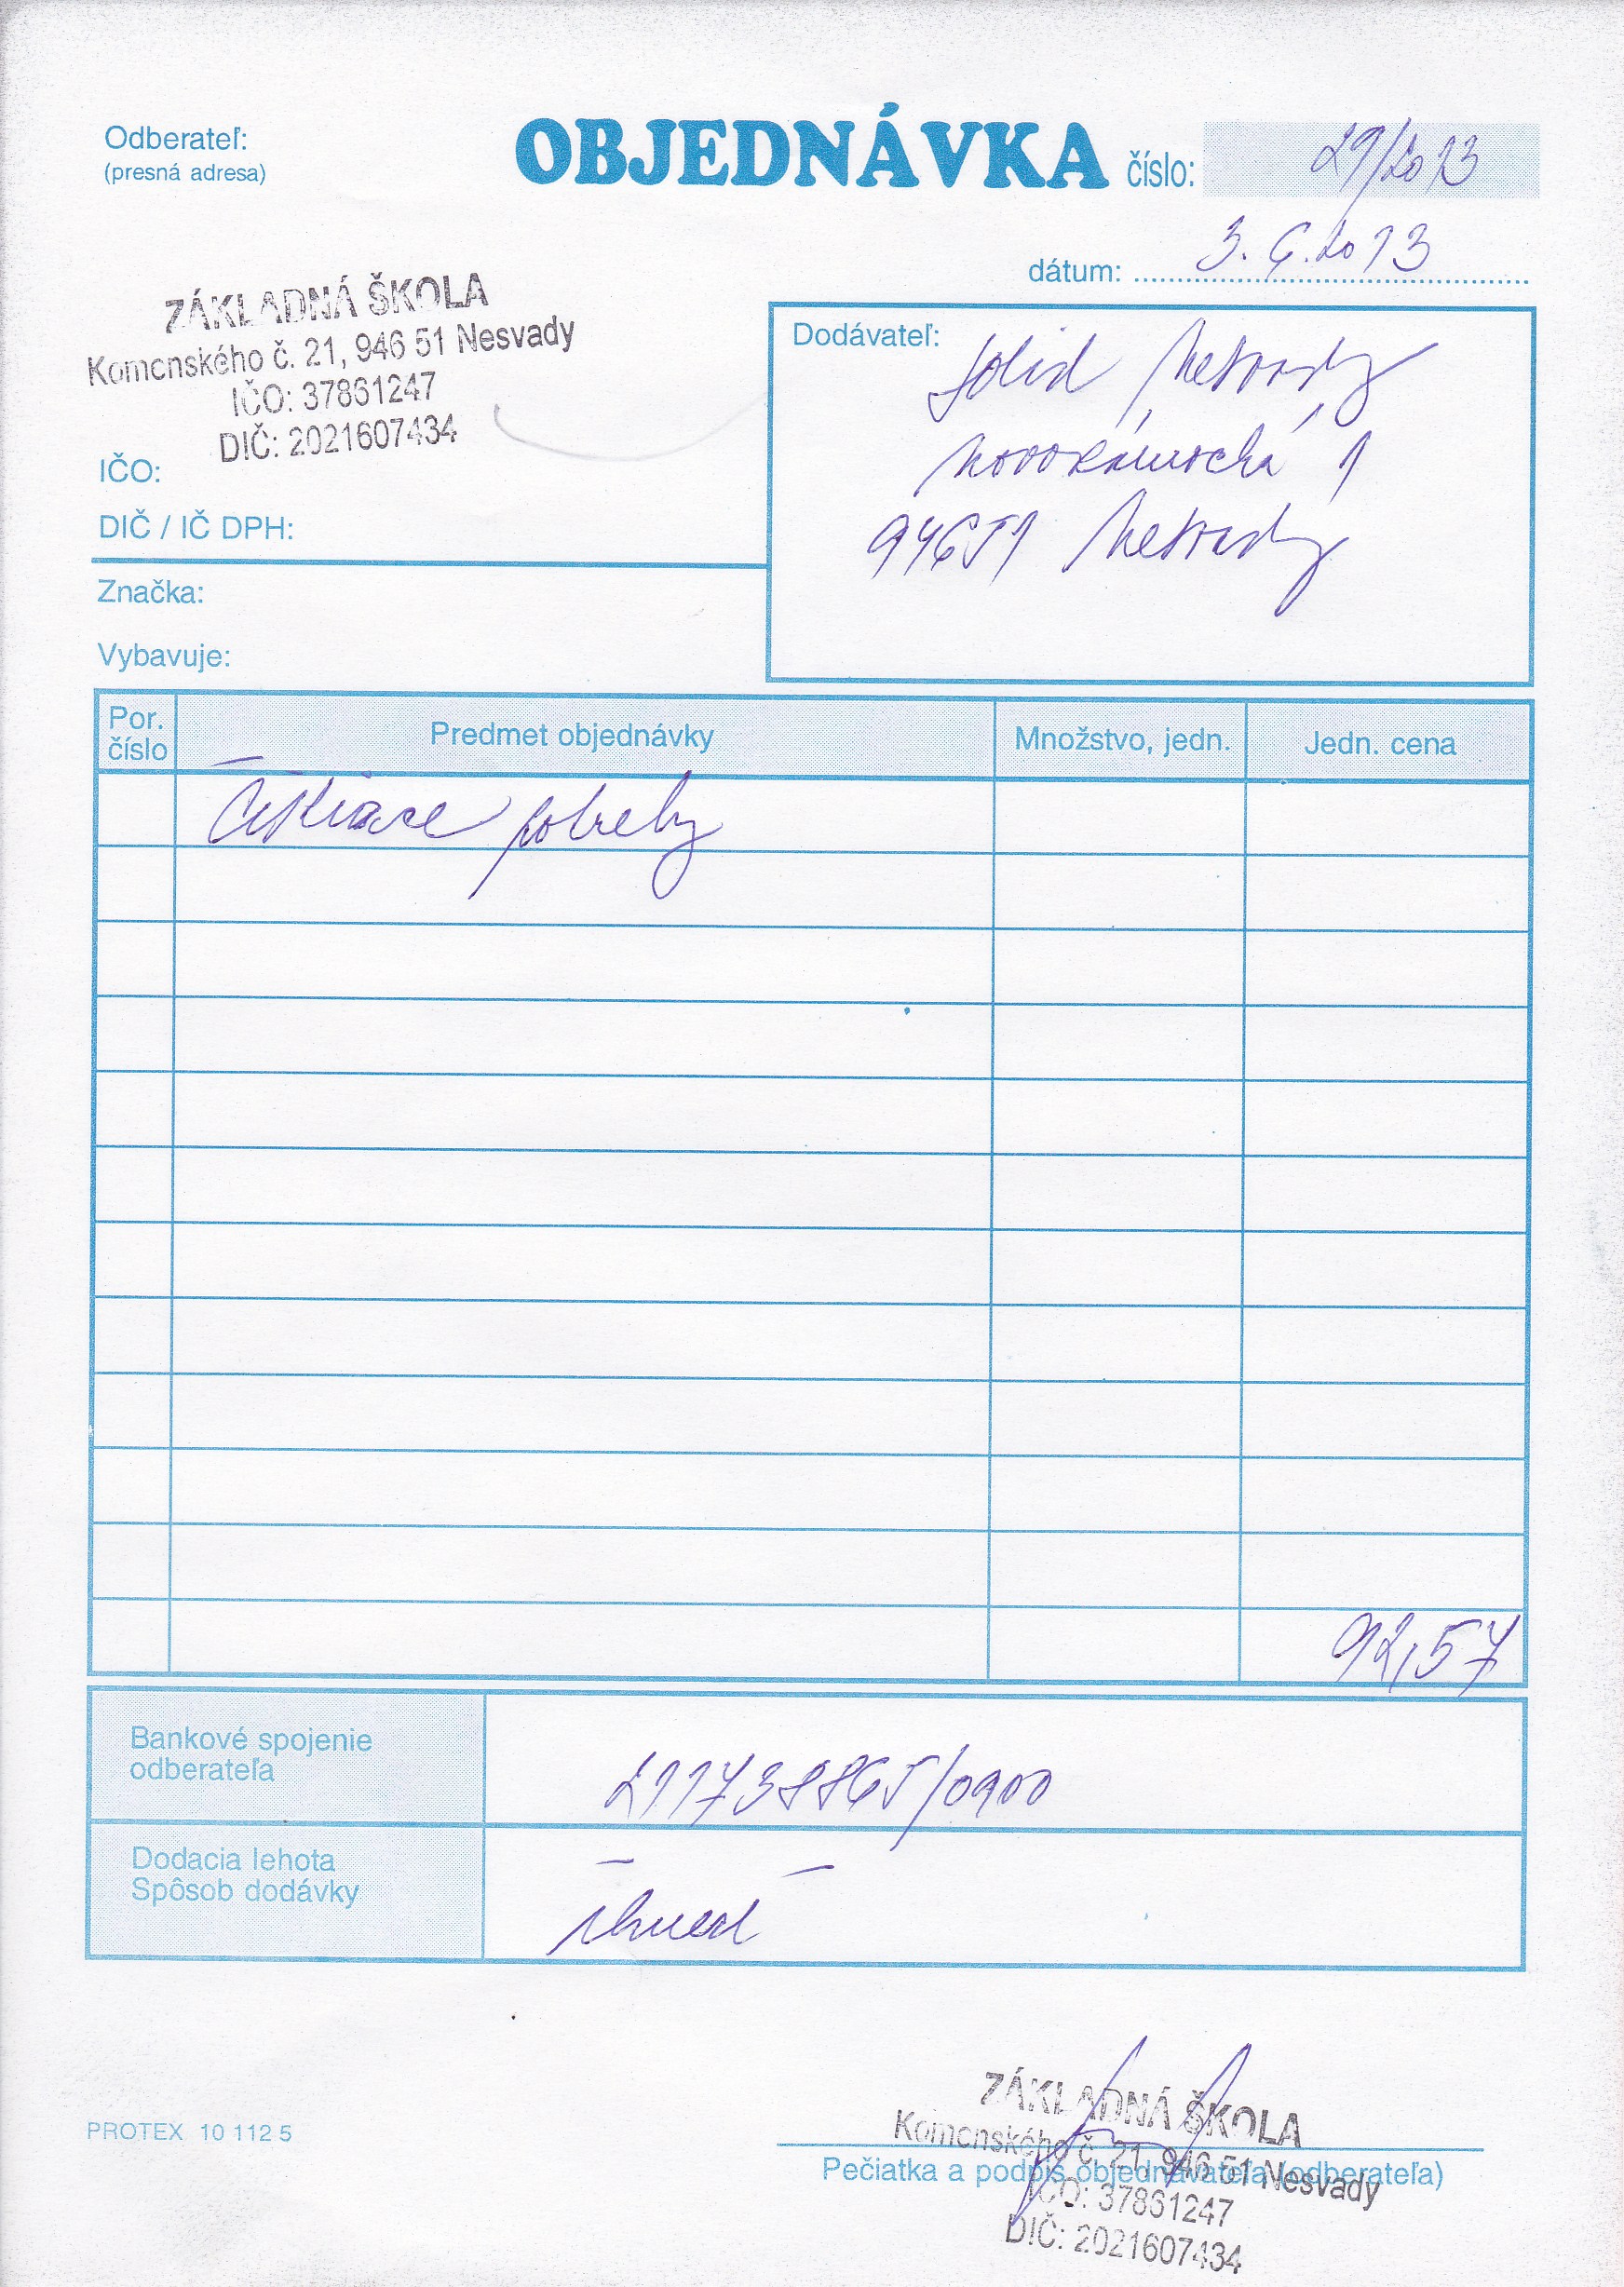 Odberateľ:
(presná adresa)
OBJEDNÁVKA číslo: 29/2013
dátum: 3. 6. 2013
ZÁKLADNÁ ŠKOLA
Komenského č. 21, 946 51 Nesvady
IČO: 37861247
DIČ: 2021607434
IČO:
DIČ / IČ DPH:
Značka:
Vybavuje:
Dodávateľ: Solid Nesvady
Novozámocká 1
94651 Nesvady
Por. číslo
Predmet objednávky
Množstvo, jedn.
Jedn. cena
Čistiace potreby
92,57
Bankové spojenie
odberateľa
2117388865/0900
Dodacia lehota
Spôsob dodávky
ihneď
ZÁKLADNÁ ŠKOLA
Komenského č. 21, 946 51 Nesvady
Pečiatka a podpis objednávateľa (odberateľa)
IČO: 37861247
DIČ: 2021607434
PROTEX 10 112 5